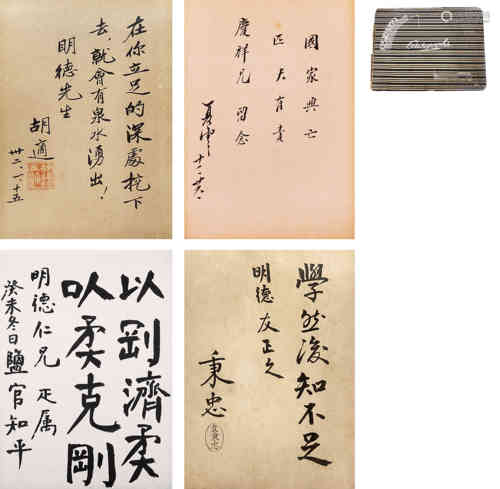 在你立足的深處挖下
去，就會有泉水湧出！
明德先生
胡適
卅二、一、十五
國家興亡
匹夫有責
慶祥兄留念
十二、廿六、
以剛濟柔
以柔克剛
明德仁兄 疋属
癸未冬日鹽官知平
學然後知不足
明德友正之
秉忠